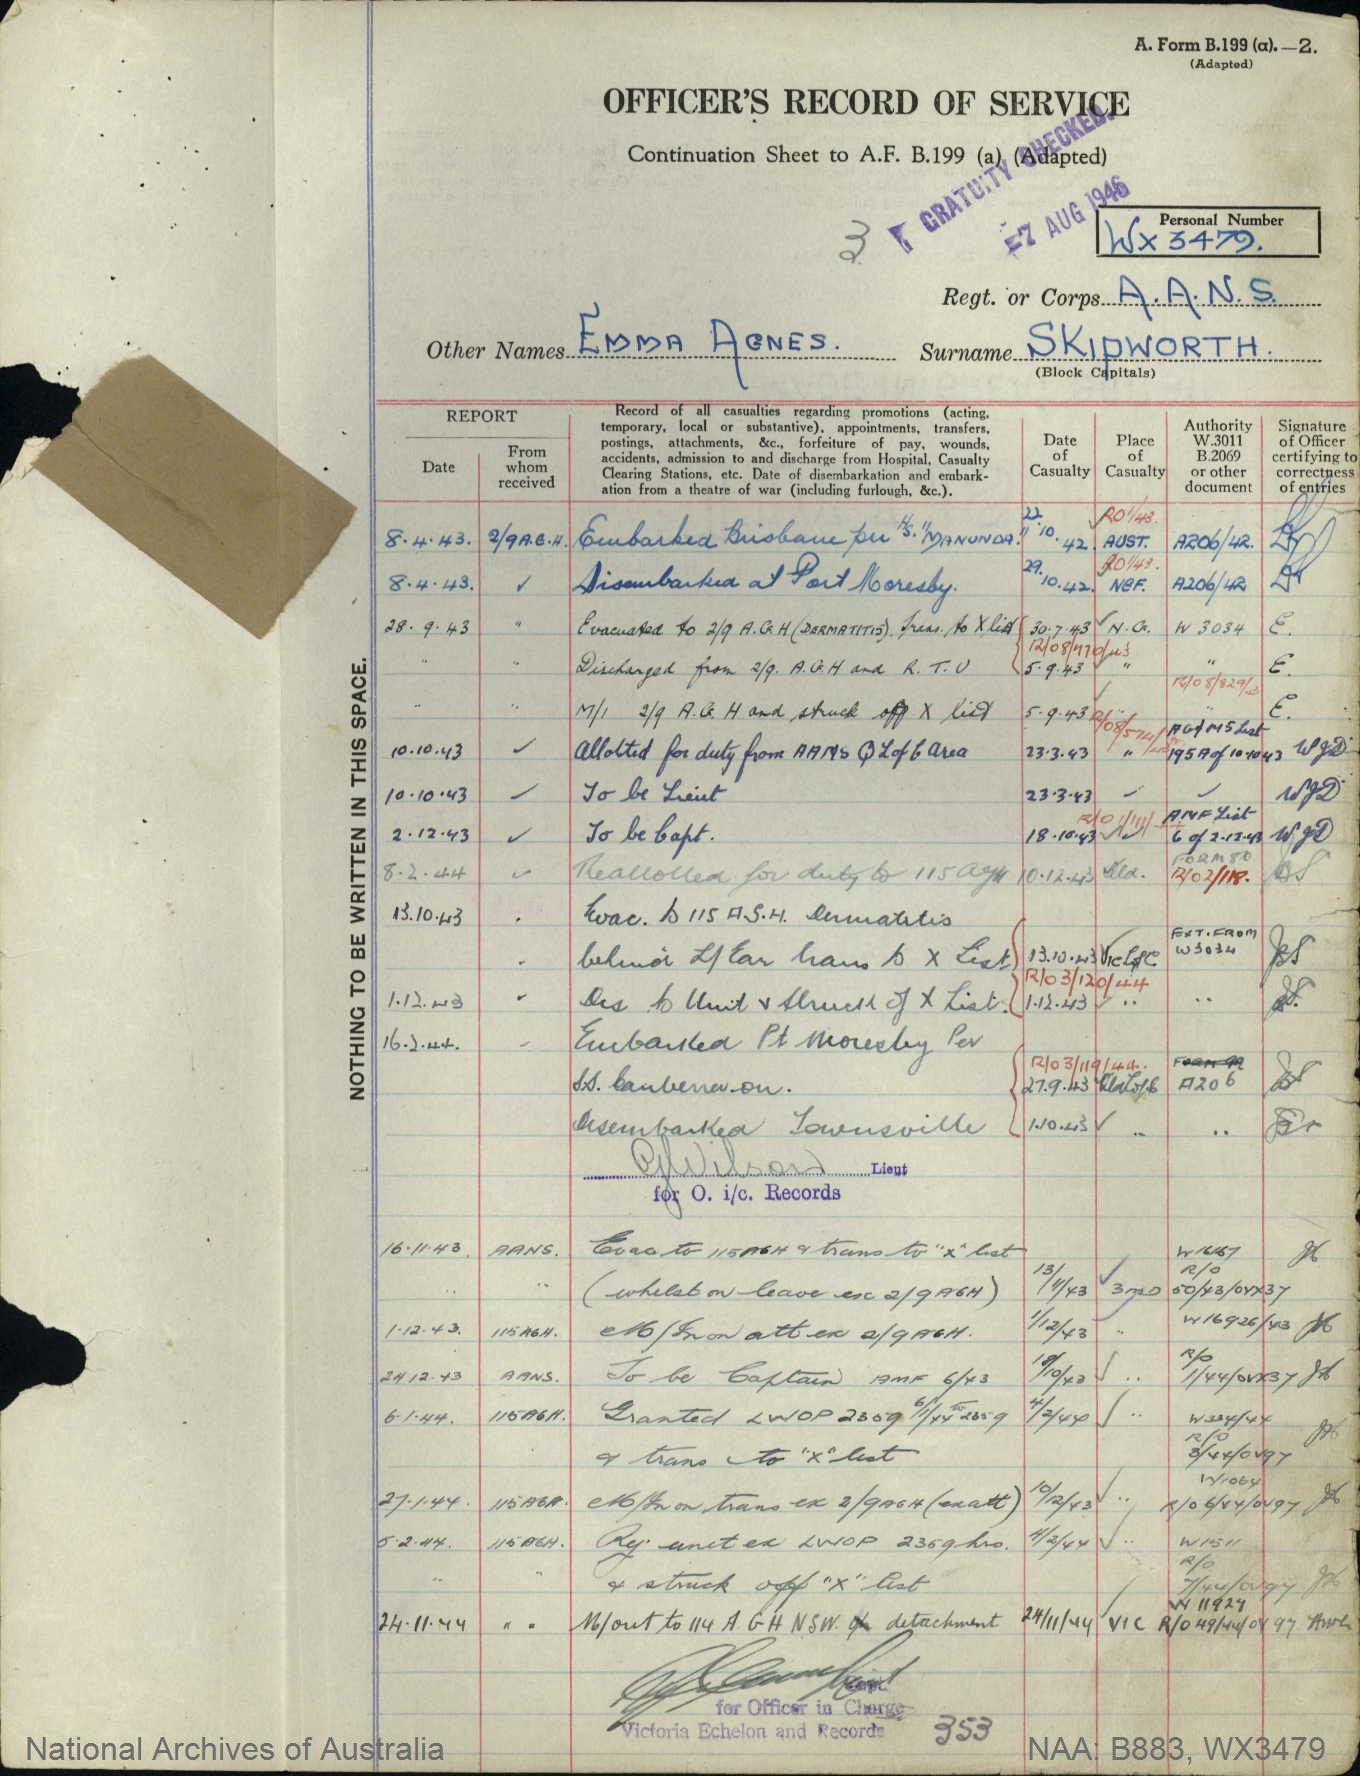 A. Form B.199 (a).—2.
(Adapted)
OFFICER'S RECORD OF SERVICE
Continuation Sheet to A.F. B.199 (a) (Adapted)
GRATUITY CHECKED.
27 AUG 1946
3
Personal Number
WX 3479.
Regt. or Corps A.A.N.S.
Other Names EMMA AGNES. Surname SKIPWORTH.
(Block Capitals)
REPORT
Date
From whom received
Record of all casualties regarding promotions (acting,
temporary, local or substantive), appointments, transfers,
postings, attachments, &c., forfeiture of pay, wounds,
accidents, admission to and discharge from Hospital, Casualty
Clearing Stations, etc. Date of disembarkation and embark-
ation from a theatre of war (including furlough, &c.).
Date of Casualty
Place of Casualty
Authority W.3011 B.2069 or other document
Signature of Officer certifying to correctness of entries
NOTHING TO BE WRITTEN IN THIS SPACE.
RO 1/43.
8.4.43. 2/9 A.G.H. Embarked Brisbane per H.S. "MANUNDA" 22.10.42. AUST. A206/42.
RO 1/43.
8.4.43. ✓ Disembarked at Port Moresby. 29.10.42. NGF. A206/42
28.9.43 " Evacuated to 2/9 A.G.H (DERMATITIS). Trans. to X list 30.7.43 N.G. W 3034 E.
" " Discharged from 2/9. A.G.H and R.T.U 5.9.43 " " E.
R/08/829/43
" " M/I 2/9 A.G.H and struck off X list 5.9.43 " " E.
10.10.43 ✓ Allotted for duty from AANS Q L of C area 23.3.43 " 195A of 10.10.43 WJD
10.10.43 ✓ To be Lieut 23.3.43 ✓ ✓ WJD
2.12.43 ✓ To be Capt. 18.10.43 ✓ AMF List 6 of 2.12.43 WJD
8.2.44 ✓ Reallotted for duty to 115 AGH 10.12.43 Qld. FORM 80 R/02/118.
13.10.43 . Evac. to 115 A.G.H. Dermatitis
. behind L/Ear trans to X List. 13.10.43 Vic L of C EXT. FROM W3034
R/03/120/44
1.12.43 ✓ Dis to Unit & Struck off X List. 1.12.43 " "
16.2.44. Embarked Pt Moresby Per
R/03/119/44.
S.S. Canberra on. 27.9.43 Qld L of C A206
Disembarked Townsville 1.10.43 " "
Wilson Lieut
for O. i/c. Records
16.11.43. AANS. Evac to 115 AGH & trans to "X" list W16167
" " (whilst on leave ex 2/9 AGH) 13/11/43 R/O 50/43/0VX37
1.12.43. 115 AGH. M/In on att ex 2/9 AGH. 1/12/43 " W16926/43
24.12.43 AANS. To be Captain AMF 6/43 18/10/43 " R/O 1/44/0VX37
6.1.44. 115 AGH. Granted LWOP 2359 6/1/44 to 2359 4/2/44 " W334/44
& trans to "X" list R/O 3/44/0V97
27.1.44. 115 AGH. M/In on trans ex 2/9 AGH (ex att) 10/12/43 " W1064 R/O 6/44/0V97
5.2.44. 115 AGH. Rej. unit ex LWOP 2359 hrs. 4/2/44 " W1511
" " & struck off "X" list R/O 7/44/0V97
24.11.44 " " M/out to 114 A.G.H N.S.W. on detachment 24/11/44 VIC W 11927 R/O 49/44/0V97
for Officer in Charge
Victoria Echelon and Records 353
National Archives of Australia NAA: B883, WX3479